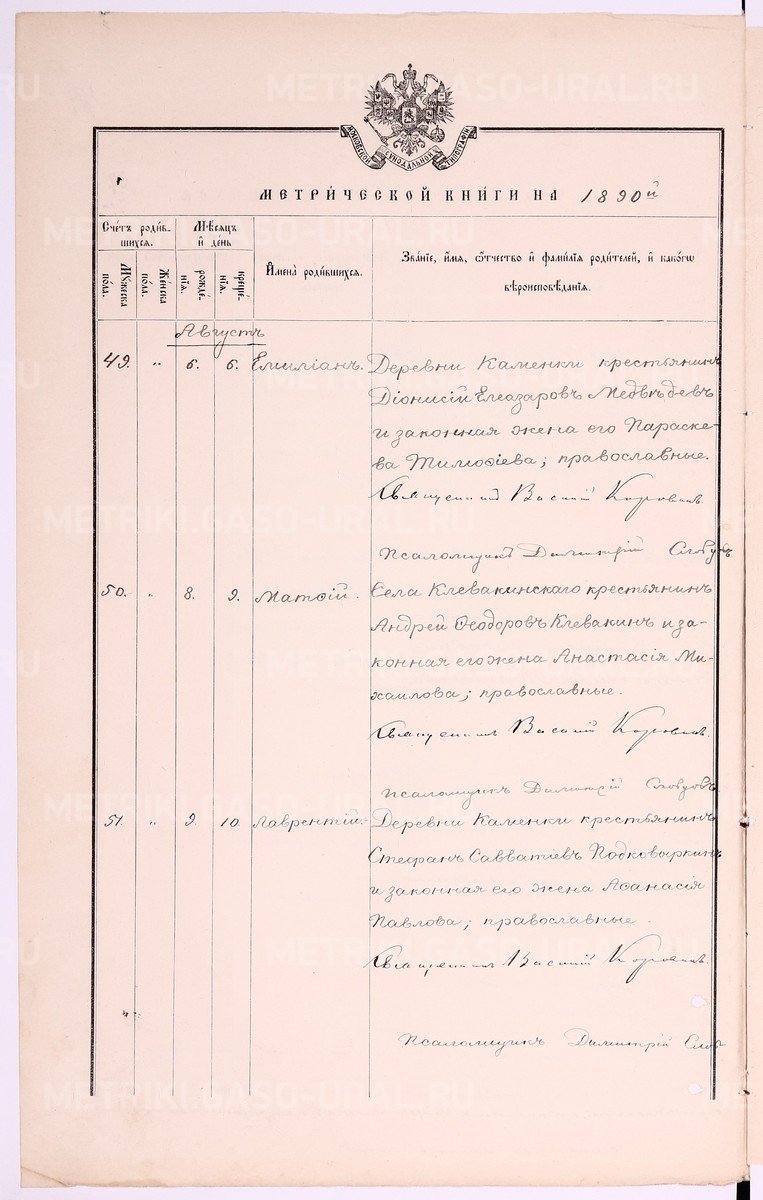 МОСКОВСКОЙ СУНОДАЛЬНОЙ ТИПОГРАФІИ
МЕТРИ́ЧЕСКОЙ КНИ́ГИ НА 1890й
Сче́тъ роди́в-
шихся.
Мѣсяцъ
и҆ де́нь
И҆мена̀ роди́вшихся.
Зва́нїе, и҆́мя, ѻ҆́тчество и҆ фами́лїя роди́телей, и҆ како́гѡ
вѣроисповѣ́данїя.
Мꙋ́жеска
по́ла.
Же́нска
по́ла.
рожде́-
нїя.
креще́-
нїя.
Августъ
49. " 6. 6. Емиліанъ. Деревни Каменки крестьянинъ
Діонисій Елеазаровъ Медвѣдевъ
и законная жена его Параске-
ва Тимоѳіева; православные.
Священникъ Василій
Псаломщикъ Димитрій
50. " 8. 9. Матѳій. Села Клевакинскаго крестьянинъ
Андрей Ѳеодоровъ Клевакинъ и за-
конная его жена Анастасія Ми-
хаилова; православные.
Священникъ Василій
Псаломщикъ Димитрій
51. " 9. 10. Лаврентій. Деревни Каменки крестьянинъ
Стефанъ Савватіевъ Подковыркинъ
и законная его жена Аѳанасія
Павлова; православные.
Священникъ Василій
Псаломщикъ Димитрій
METRIKI.GASO-URAL.RU